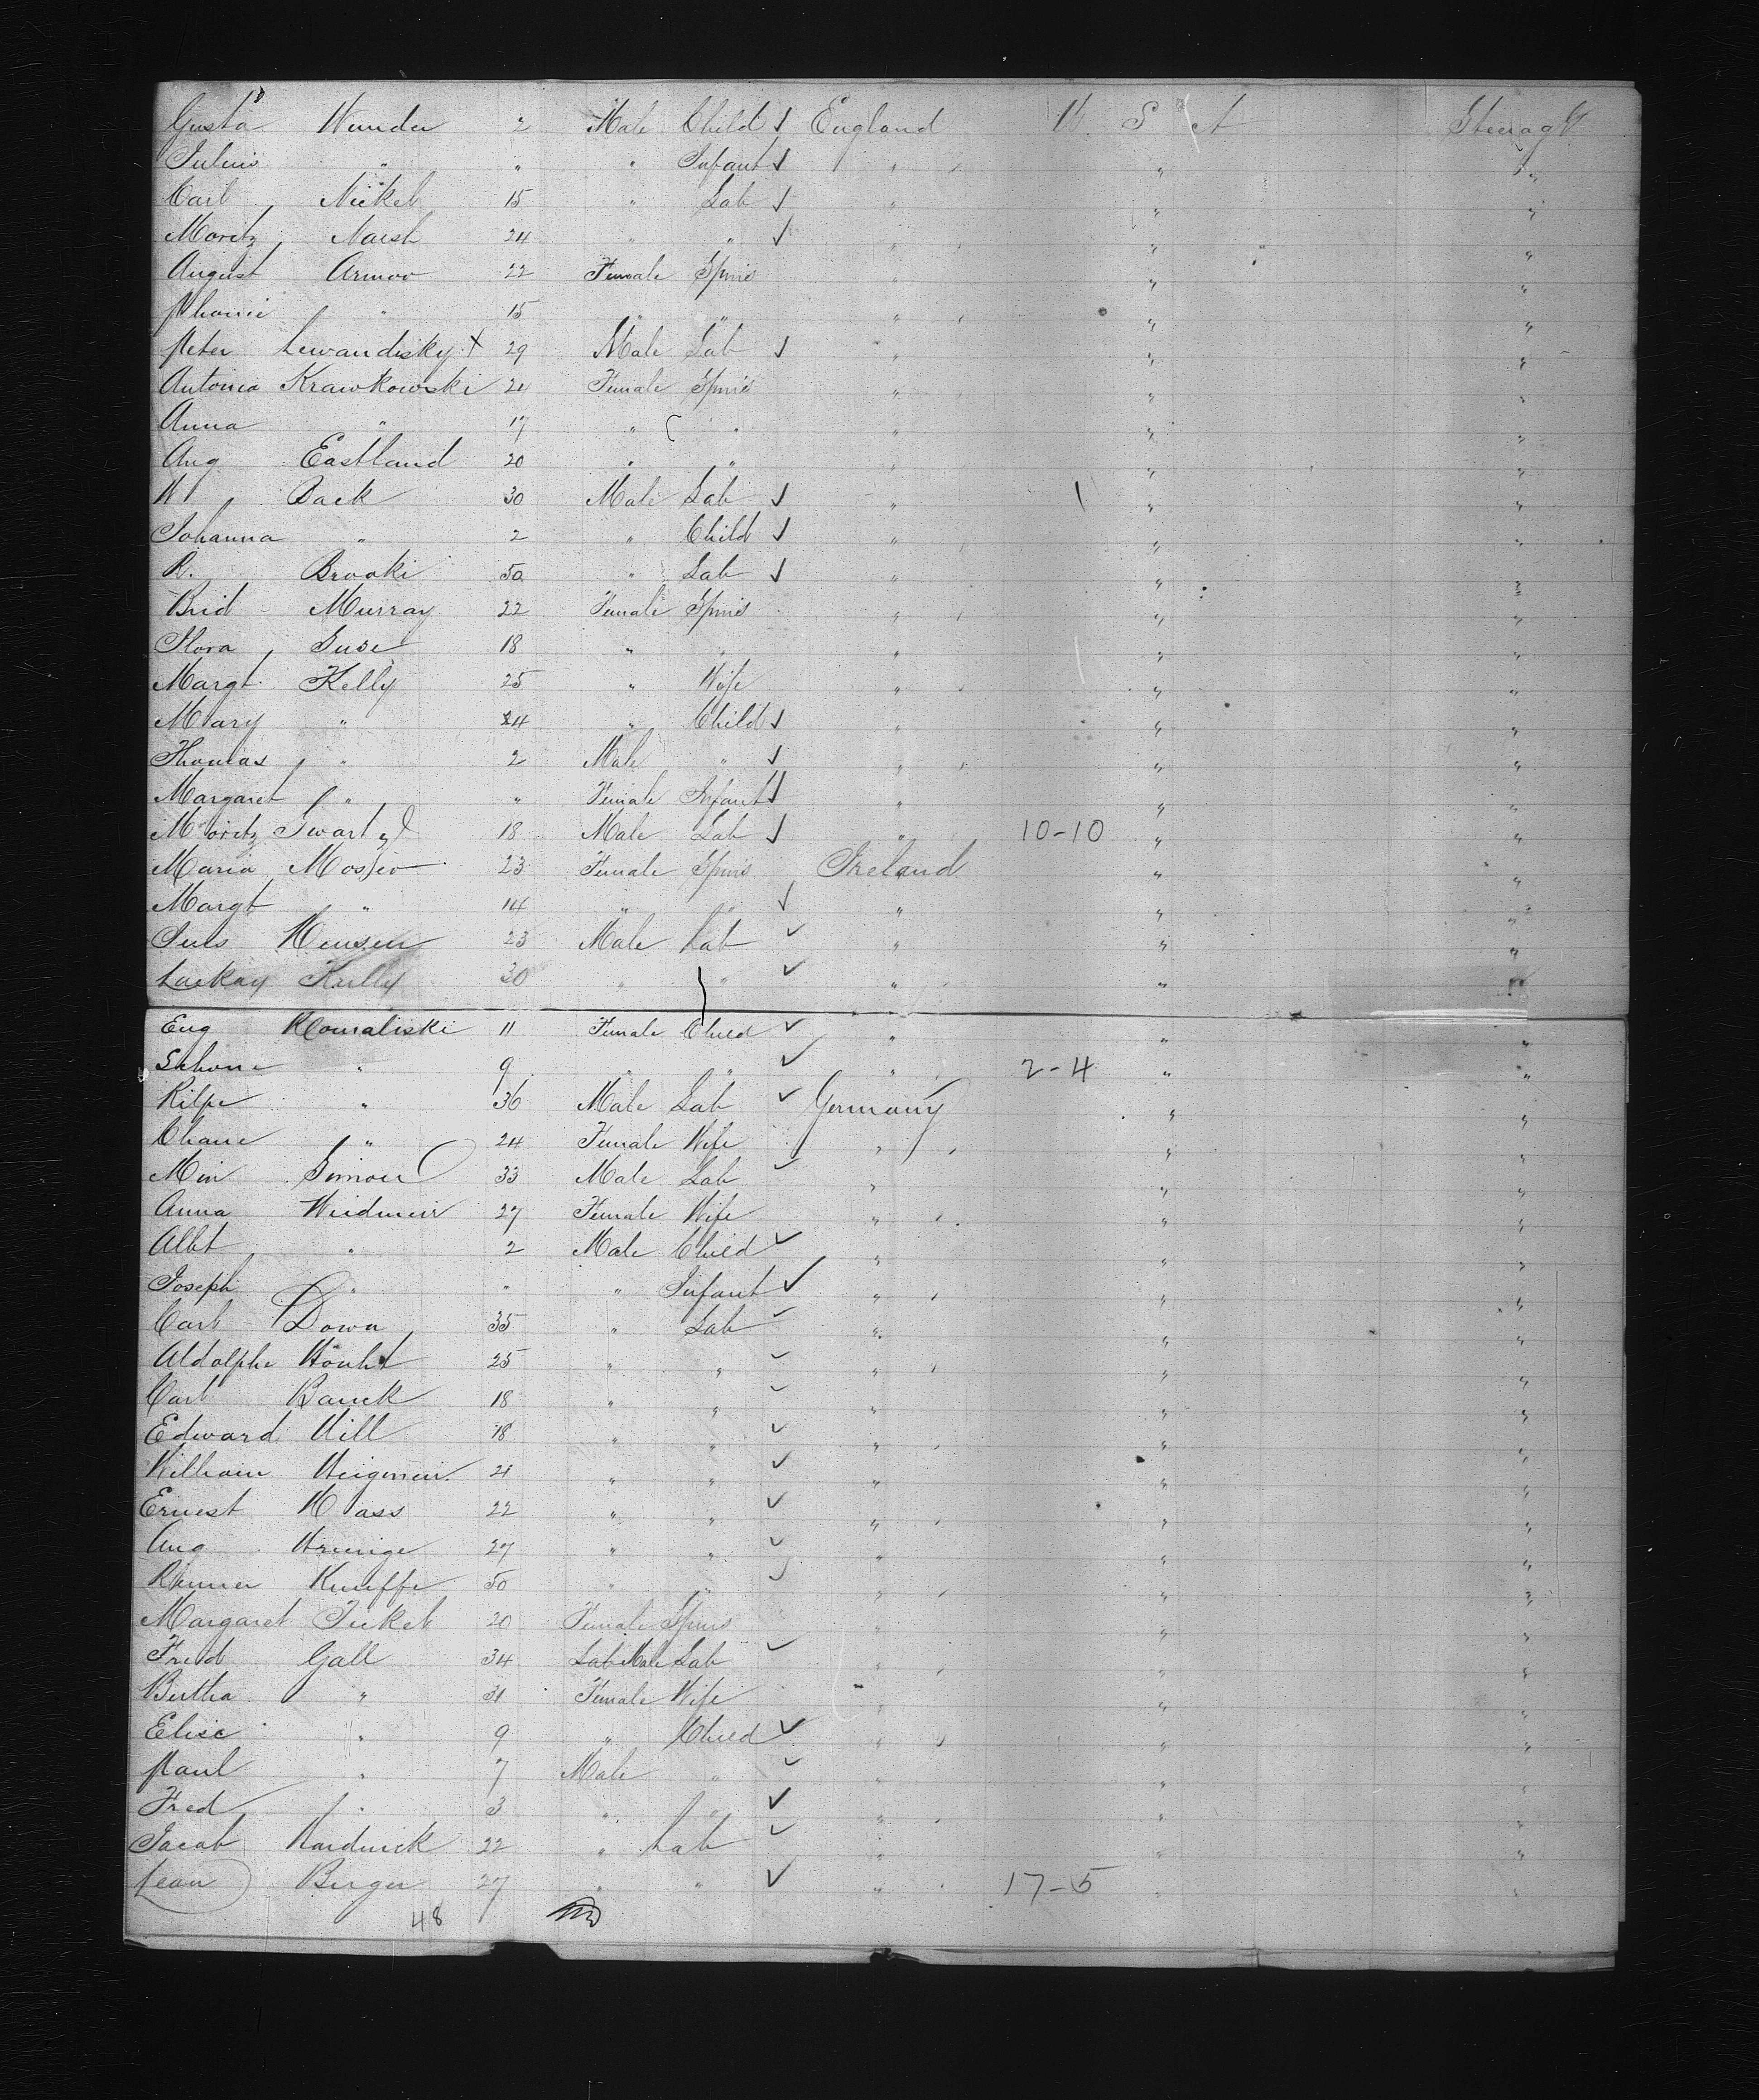 Gusta Wunder 2 Male Child ✓ England U S A Steerage
Julius " " " Infant ✓ " " "
Carl Nickel 15 " Lab ✓ " " "
Moritz Naish 24 " " ✓ " " "
August Armoo 22 Female Spins " " "
" 15 " " " " "
Peter Lewandisky X 29 Male Lab ✓ " " "
Antonia Krawkowski 24 Female Spins " " "
Anna " 17 " " " " "
Aug Eastland 20 " " " " "
W Back 30 Male Lab ✓ " " "
Johanna " 2 " Child ✓ " " "
R. Brooki 50 " Lab ✓ " " "
Brid Murray 22 Female Spins " " "
Flora Suse 18 " " " " "
Margt Kelly 25 " Wife " " "
Mary " 4 " Child ✓ " " "
Thomas " 2 Male " ✓ " " "
Margaret " " Female Infant ✓ " " "
Moritz Swartz 18 Male Lab ✓ " 10-10 " "
Maria 23 Female Spins Ireland " "
Margt " 14 " " ✓ " " "
Jens Hensen 23 Male Lab ✓ " " "
Lackay Kully 30 " " ✓ " " "
Eug Kowaliski 11 Female Child ✓ " " "
" 9 " " ✓ " 2-4 " "
Rilpe " 36 Male Lab ✓ Germany " "
Chane " 24 Female Wife " " "
Min Simon 33 Male Lab ✓ " " "
Anna Weidmeir 27 Female Wife " " "
Albt " 2 Male Child ✓ " " "
Joseph " " " Infant ✓ " " "
Carl Dowa 35 " Lab ✓ " " "
Aldolphe 25 " " ✓ " " "
Carl Banck 18 " " ✓ " " "
Edward Hill 18 " " ✓ " " "
William Heigmeir 21 " " ✓ " " "
Ernest Hass 22 " " ✓ " " "
Aug 27 " " ✓ " " "
Kneiffe 50 " " ✓ " " "
Margaret Tickel 20 Female Spins " "
Fred Gall 34 Lab Male Lab ✓ " " "
Bertha " 31 Female Wife " " "
Elise " 9 " Child ✓ " " "
Paul " 7 Male " ✓ " " "
Fred " 3 " " ✓ " " "
Jacob Hardwick 22 " Lab ✓ " " "
Lean Berger 27 " " ✓ " 17-5 " "
48